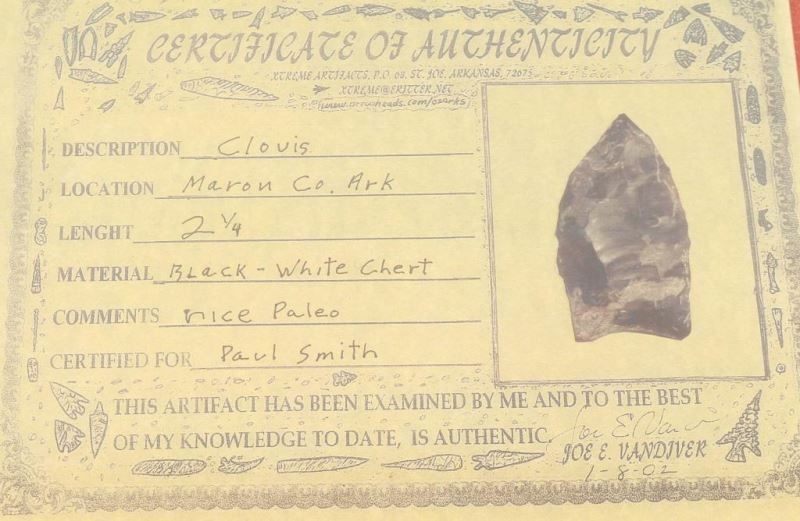 CERTIFICATE OF AUTHENTICITY
XTREME ARTIFACTS, P.O. 68, ST. JOE, ARKANSAS, 72675
XTREME@ERITTER.NET
www.arrowheads.com/ozarks
DESCRIPTION Clovis
LOCATION Maron Co. Ark
LENGHT 2 1/4
MATERIAL Black - White Chert
COMMENTS nice Paleo
CERTIFIED FOR Paul Smith
THIS ARTIFACT HAS BEEN EXAMINED BY ME AND TO THE BEST
OF MY KNOWLEDGE TO DATE, IS AUTHENTIC.
JOE E. VANDIVER
1-8-02